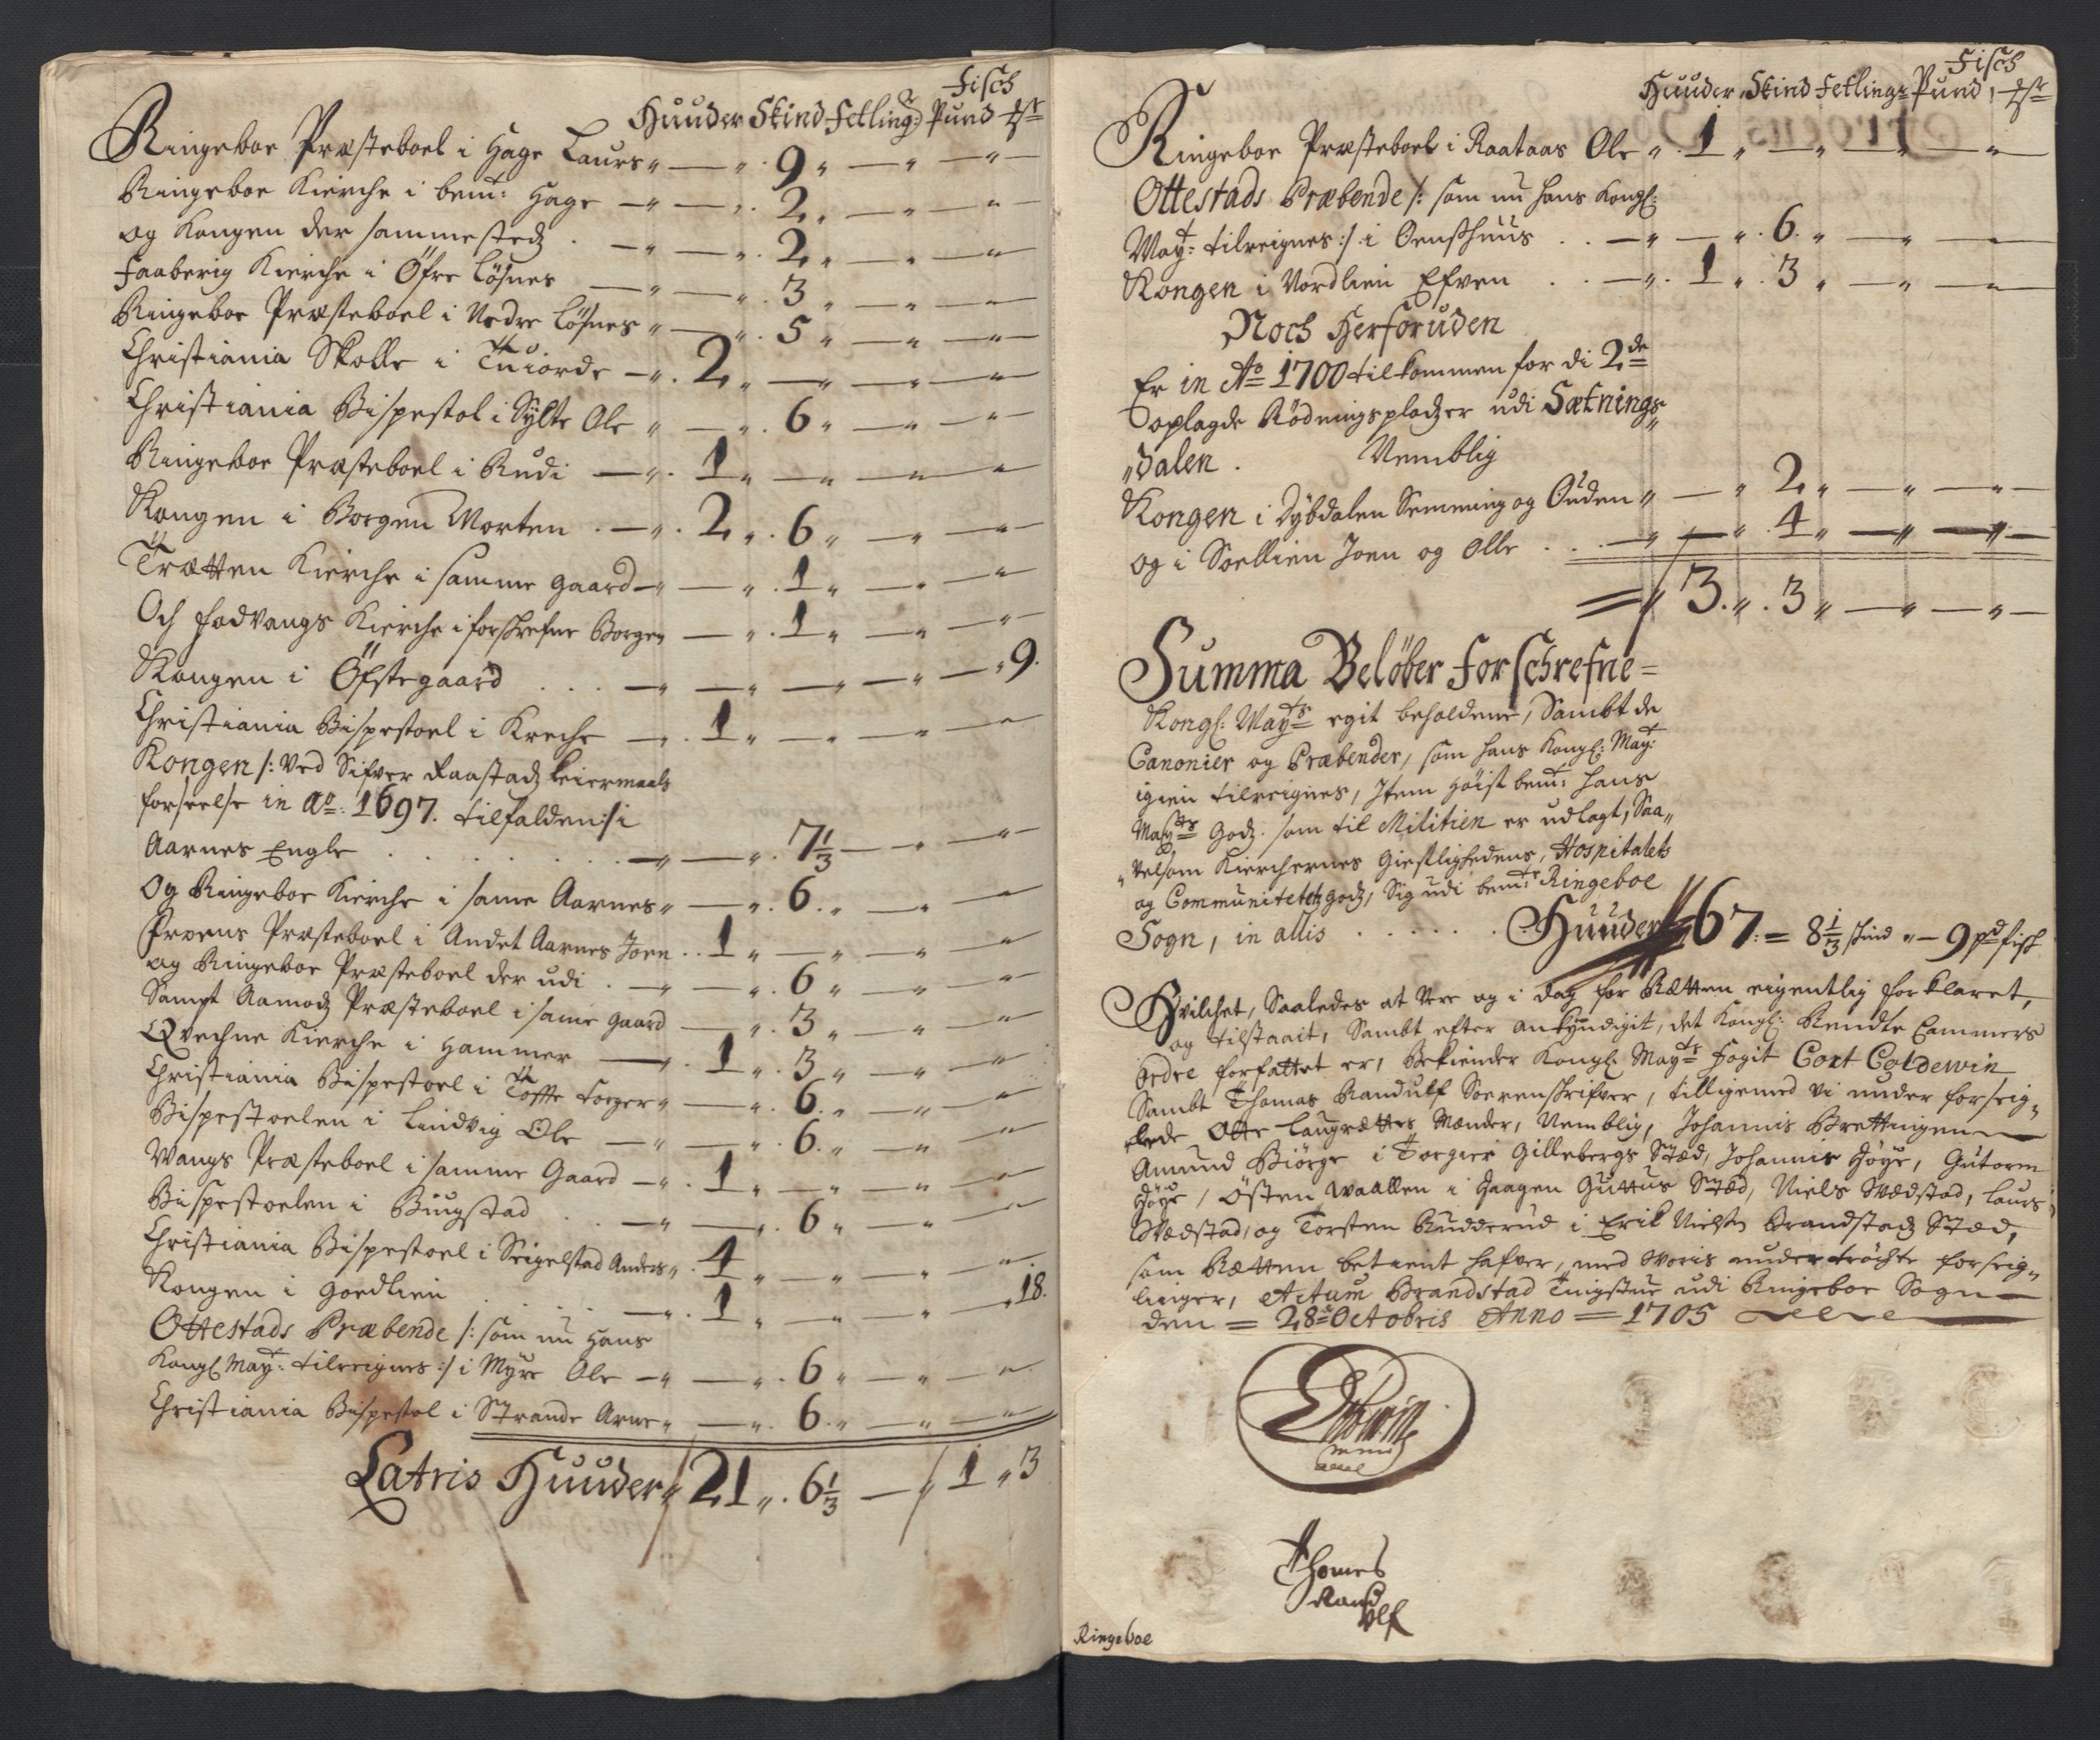 Fisch
Huuder Skind Fetling: Pund
Ringeboe Præsteboel i Hage Laurs " — " 9 " — " — " —
Ringeboe Kierche i bem:t Hage — " — " 2 " — " — " —
og Kongen der sammestedz . — " — " 2 " — " — " —
Faaberig Kierche i Öfre Lösnes — " — " 3 " — " — " —
Ringeboe Præsteboel i Nedre Lösnes " — " 5 " — " — " —
Christiania Skolle i Tuiorde — " 2 " — " — " — " —
Christiania Bispestol i Sylte Ole " — " 6 " — " — " —
Ringeboe Præsteboel i Rudi — " 1 " — " — " — " —
Kongen i Borgen Morten . — " 2 " 6 " — " — " —
Trætten Kierche i samme gaard — " — " 1 " — " — " —
Och Fodvangs Kierche i forschrefne Borgen — " 1 " — " — " —
Kongen i Öfstegaard . . . — " — " — " — " — " 9.
Christiania Bispestoel i Kreche — " 1 " — " — " — " —
Kongen /: Ved Sifver Raastadz Leiermaals
forseelse in Ao: 1697. tilfalden :/ i
Aarnes Engle . . . . . . — " — " 7 1/3 — " — " —
Og Ringeboe Kierche i same Aarnes " — " 6 " — " — " —
Præsteboel i Andet Aarnes Joen . . 1 " — " — " — " —
og Ringeboe Præsteboel der udi . — " — " 6 " — " — " —
Sampt Aamodz Præsteboel i same gaard — " 3 " — " — " —
Qvechne Kierche i Hammer — " 1 " 3 " — " — " —
Christiania Bispestoel i Toffte Torger " — " 6 " — " — " —
Bispestoelen i Lindvig Ole — " — " 6 " — " — " —
Wangs Præsteboel i samme Gaard — " 1 " — " — " — " —
Bispestoelen i Biugstad . . — " — " 6 " — " — " —
Christiania Bispestoel i Seigelstad Anders " 4 " — " — " — " —
Kongen i Goedlien . . . . — " 1 " — " — " — " 18.
Ottestads Præbende /: som nu Hans
Kongl May:t tilreignes :/ i Myre Ole — " — " 6 " — " — " —
Christiania Bispestol i Strande Arne " — " 6 " — " — " —
Latris Huuder " 21 " 6 1/3 — " 1 " 3
Fisch
Huuder, Skind Fetlinge Pund,
Ringeboe Præsteboel i Raataas Ole " 1 " — " — " — " —
Ottestads Præbende /: som nu hans Kongl:
May:t tilreignes :/ i Oensthuus . . — " — " 6 " — " — " —
Kongen i Nordlien Efven . . — " 1 " 3 " — " — " —
Noch Herforuden
Er in Ao 1700 tilkommen for di 2de
oplagde Rödningspladzer udi Sætnings„
„dalen . Nemblig
Kongen i Dybdalen Semming og Ouden " — " 2 " — " — " —
og i Soellien Joen og Olle . . . — " — " 4 " — " — " —
= " 3. " 3 " — " — " —
Summa Beløber Forschrefne =
Kongl: Mayts egit beholdene, Sambt de
Canonier og Præbender, som hans Kongl: May:t
igien tilreignes, Item Høist bem:t hans
Mayts Godz. som til Militien er udlagt, Saa„
„velsom Kierchernes Giestlighedens, Hospitalets
og Communitetetz godz, Sig udi bem:te Ringeboe
Sogn, in allis . . . . . . Huuder 67. = 8 1/3 skind " — 9 pd fisch
Hvilchet, Saaledes at Vere og i dag for Rætten eigentlig forklaret,
og tilstaait, Sambt efter ankyndigit, det Kongl: Rendte Cammers
Ordre forfattet er, bekiender Kongl: Mayts Fogit Cort Coldewin
Sambt Thomas Randulf Soerenschrifver, tilligemed vi under forseig„
lede Otte Laugrættes Mænder, Nemblig, Johannis Brettingen —
Amund Biörge i Torgier Gillebergs Stæd, Johannis Höye, Gutorm
Höye, Östen Waallen i Haagen Guttus Stæd, Niels Vædstad, Laurs
Vædstad, og Torsten Rudderud i Erik Nielsen Brandstadz Stæd,
som Rætten betient hafver, med Voris undertröchte forseig„
linger, Actum Brandstad Tingstue udi Ringeboe Sogn —
den = 28de Octobris Anno = 1705
Thomes
Rand
Ulf
Ringeboe